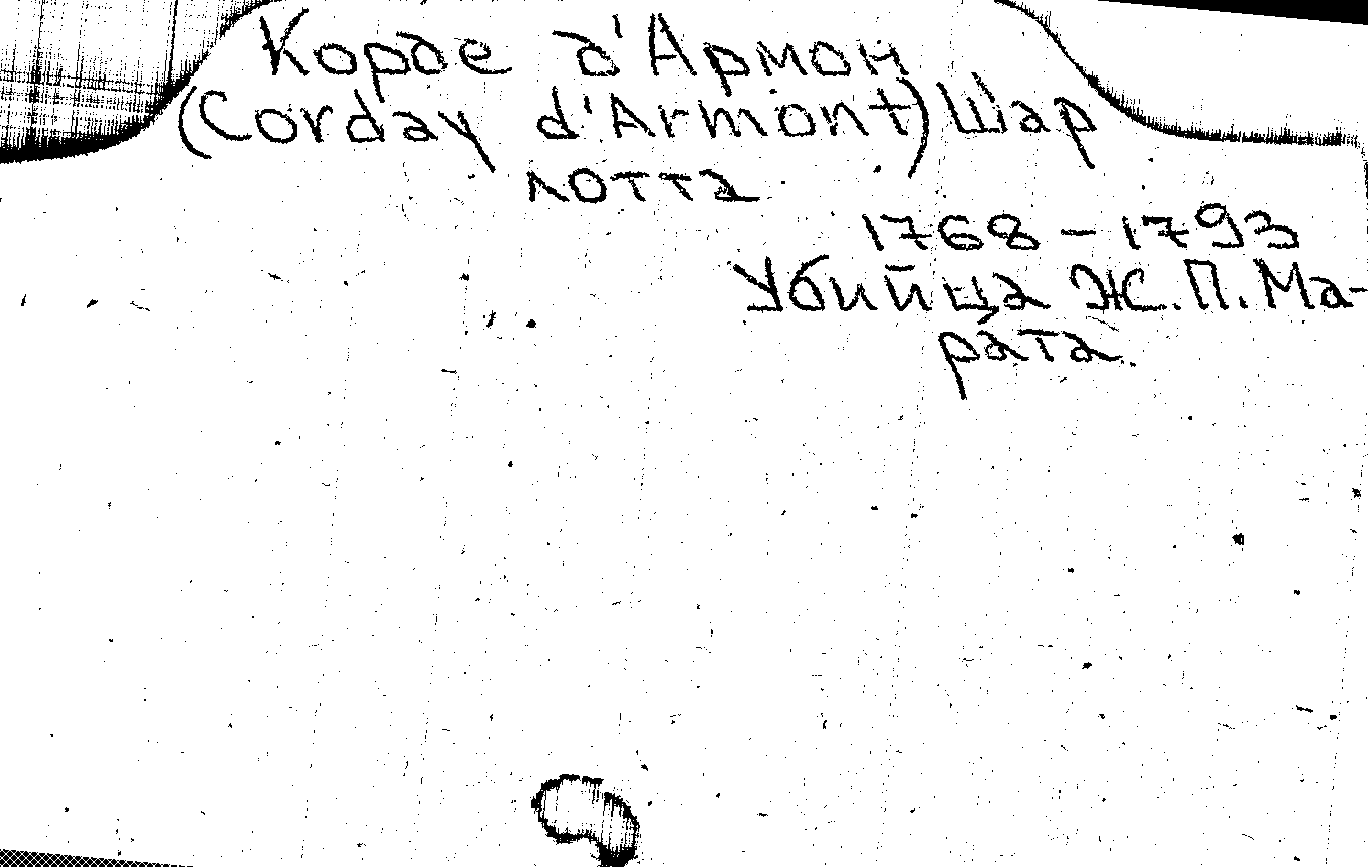 Корде д'Армон
(Corday d'Armont) Шар
лотта
1768 - 1793
Убийца Ж.П.Ма-
рата.